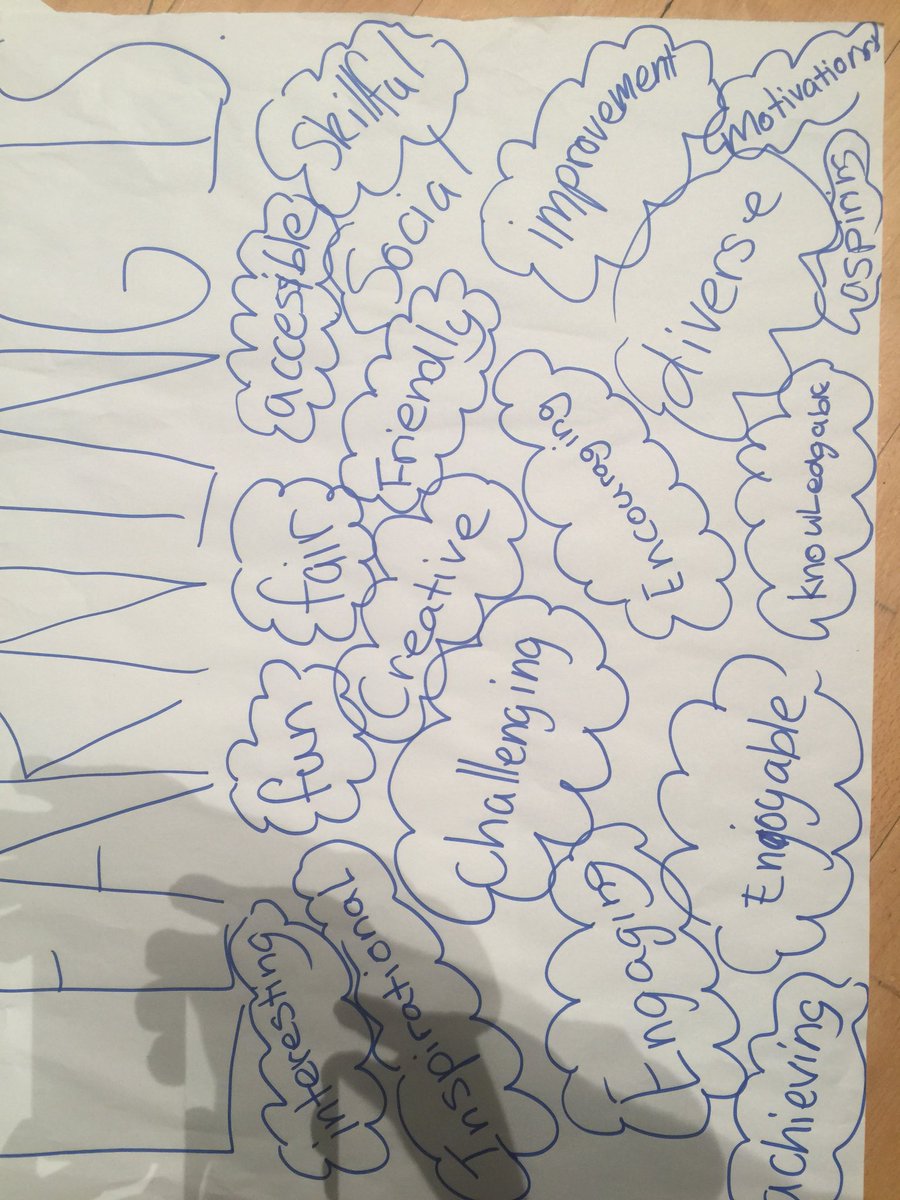 LEARNING IS
interesting
fun
fair
accessible
Skillful
Inspirational
Creative
Friendly
Social
challenging
Encouraging
improvement
Engaging
diverse
Enjoyable
knowledgable
aspiring
achieving